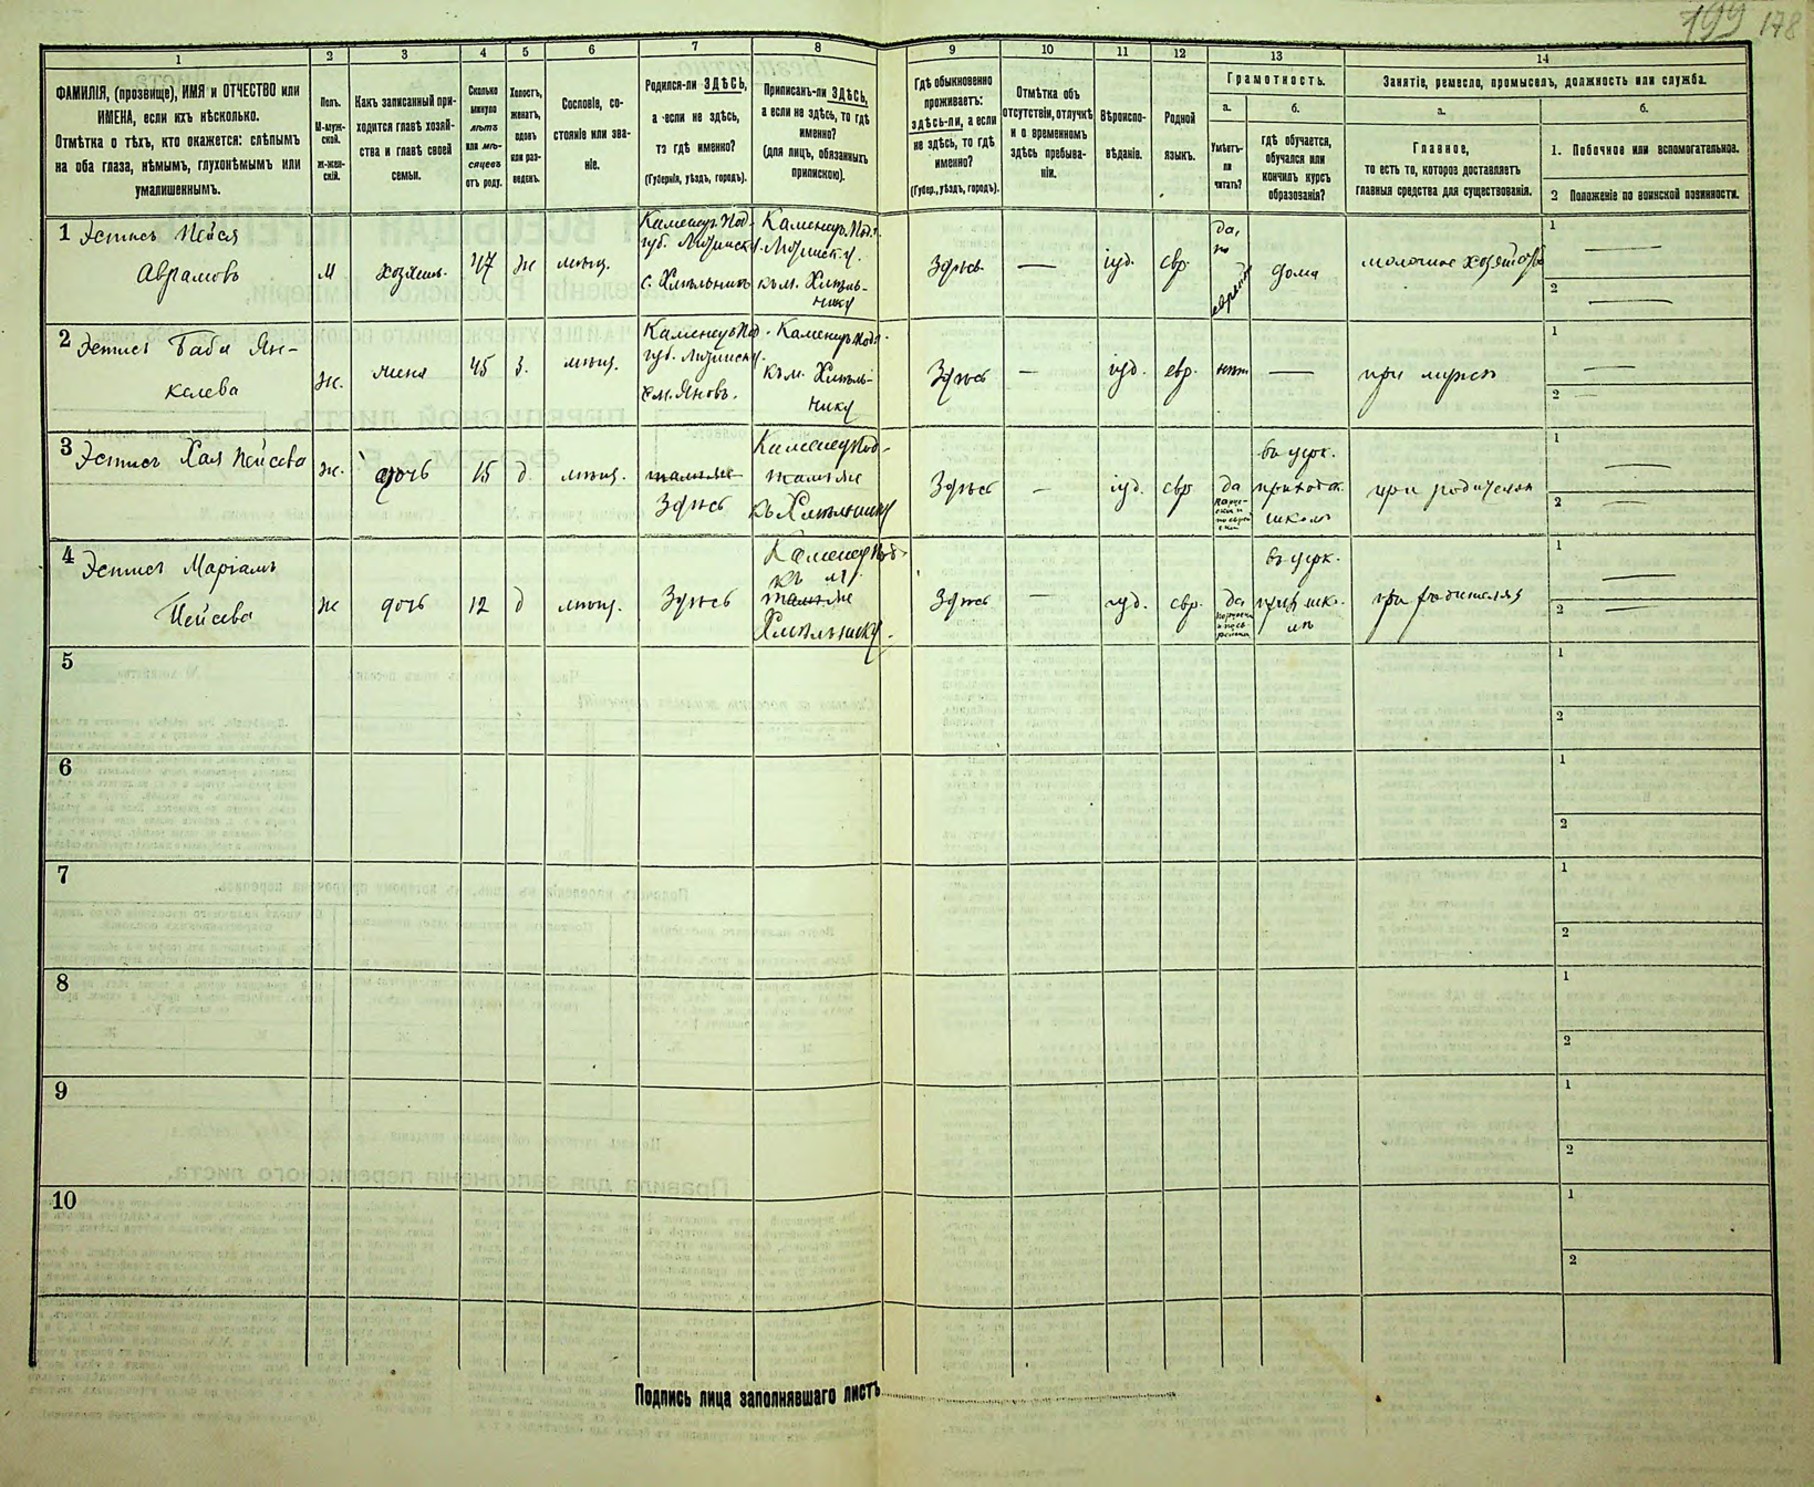 199 178
1 2 3 4 5 6 7 8 9 10 11 12 13 14
ФАМИЛІЯ, (прозвище), ИМЯ и ОТЧЕСТВО или
ИМЕНА, если ихъ нѣсколько.
Отмѣтка о тѣхъ, кто окажется: слѣпымъ
на оба глаза, нѣмымъ, глухонѣмымъ или
умалишеннымъ.
Полъ.
М-муж-
ской.
Ж-жен-
скій.
Какъ записанный при-
ходится главѣ хозяй-
ства и главѣ своей
семьи.
Сколько
минуло
лѣтъ
или мѣ-
сяцевъ
отъ роду.
Холостъ,
женатъ,
вдовъ
или раз-
веденъ.
Сословіе, со-
стояніе или зва-
ніе.
Родился-ли ЗДѢСЬ,
а если не здѣсь,
то гдѣ именно?
(Губернія, уѣздъ, городъ).
Приписанъ-ли ЗДѢСЬ,
а если не здѣсь, то гдѣ
именно?
(для лицъ, обязанныхъ
припискою).
Гдѣ обыкновенно
проживаетъ:
здѣсь-ли, а если
не здѣсь, то гдѣ
именно?
(Губер., уѣздъ, городъ).
Отмѣтка объ
отсутствіи, отлучкѣ
и о временномъ
здѣсь пребыва-
ніи.
Вѣроиспо-
вѣданіе.
Родной
языкъ.
Грамотность.
а.
Умѣетъ-
ли
читать?
б.
гдѣ обучается,
обучался или
кончилъ курсъ
образованія?
Занятіе, ремесло, промыселъ, должность или служба.
а.
Главное,
то есть то, которое доставляетъ
главныя средства для существованія.
б.
1. Побочное или вспомогательное.
2 Положеніе по воинской повинности.
1 Эстисъ Пейся
Аврамовъ
М
хозяинъ.
47
ж
мѣщ.
Каменец. Под.
губ. Литинск. у.
с. Хмѣльникъ
Каменец. Под.
Литинск. у.
къ м. Хмѣль-
нику
Здѣсь
—
іуд.
евр.
да,
по
еврейс.
дома
молочное хозяйство
1 —
2 —
2 Эстисъ Баба Ян-
келева
Ж.
жена
45
з.
мѣщ.
Каменец Под.
губ. Литинск. у.
м. Яновъ.
Каменец. Под.
къ м. Хмѣль-
нику
Здѣсь
—
іуд.
евр.
нѣтъ
—
при мужѣ
1
2 —
3 Эстисъ Хая Пейсева
Ж.
дочь
15
д.
мѣщ.
тамъ же
Здѣсь
Каменец Под.
тамъ же
къ Хмѣльнику
Здѣсь
—
іуд.
евр
да
въ церк.
приходск.
школѣ
при родителяхъ
1 —
2 —
4 Эстисъ Маріамъ
Пейсева
Ж
дочь
12
д
мѣщ.
Здѣсь
Каменец Под.
къ м.
тамъ же
Хмѣльнику.
Здѣсь
—
іуд.
евр.
да,
въ церк.
прих шко-
лѣ
при родителяхъ
1 —
2 —
5
1
2
6
1
2
7
1
2
8
1
2
9
1
2
10
1
2
Подпись лица заполнявшаго листъ